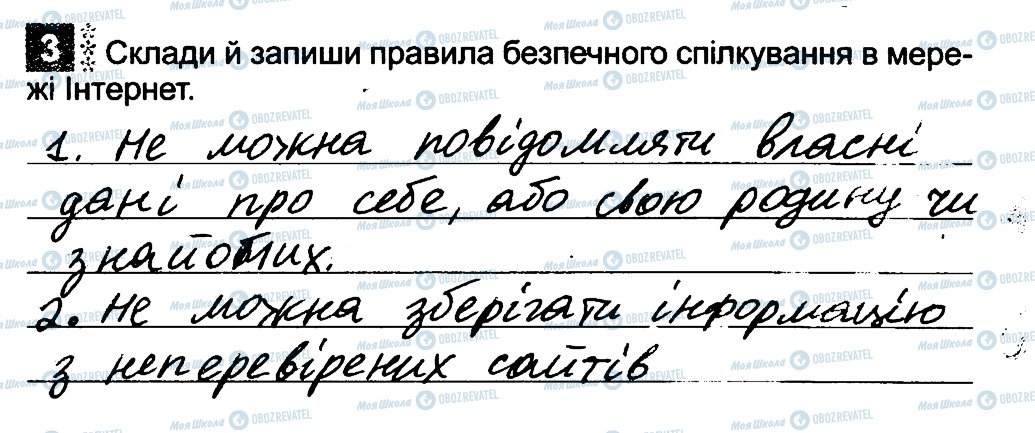 3 Склади й запиши правила безпечного спілкування в мере-
жі Інтернет.
1. Не можна повідомляти власні
дані про себе, або свою родину чи
знайомих.
2. Не можна зберігати інформацію
з неперевірених сайтів